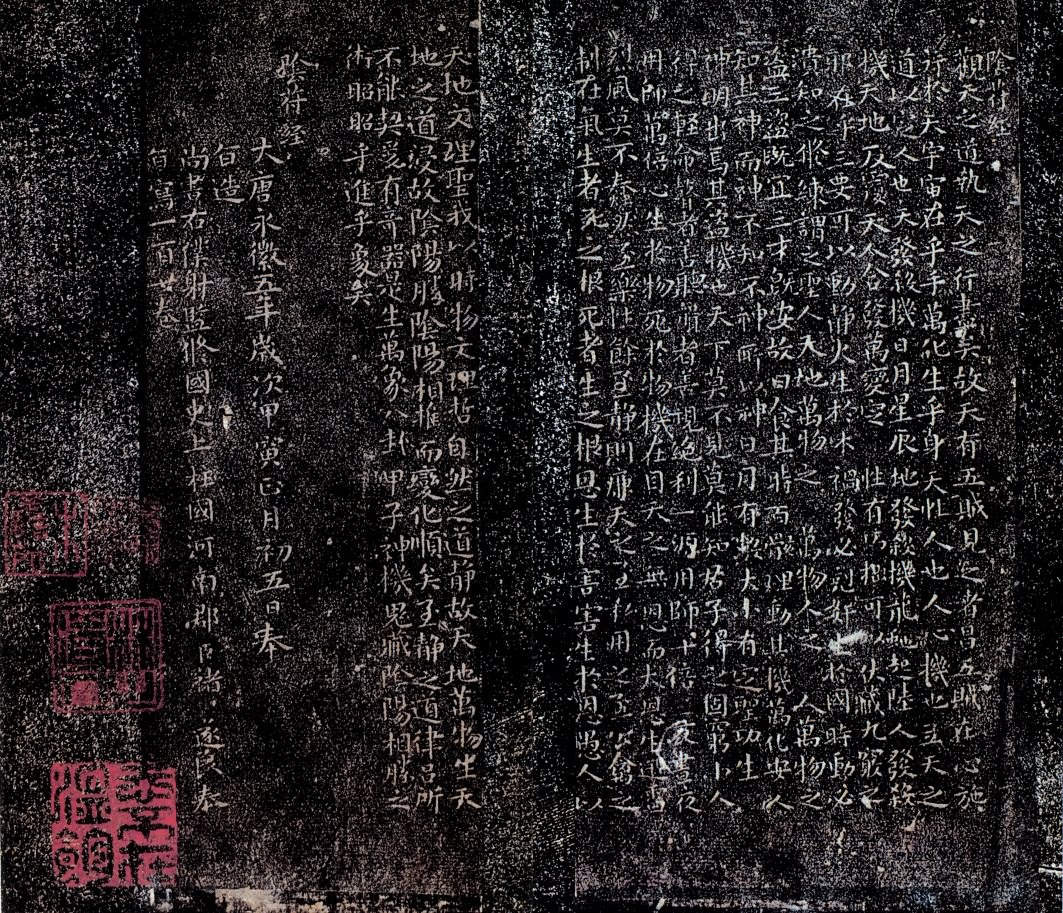 陰符經
觀天之道執天之行盡矣故天有五賊見之者昌五賊在心施
行於天宇宙在乎手萬化生乎身天性人也人心機也立天之
道以定人也天發殺機日月星辰地發殺機龍蛇起陸人發殺
機天地反覆天人合發萬變定 性有巧拙可以伏藏九竅之
邪在乎三要可以動靜火生於木禍發必剋奸生於國時動必
潰知之修練謂之聖人天地萬物之 萬物人之 人萬物之
盜三盜既宜三才既安故曰食其時百骸理動其機萬化安人
知其神而神不知不神所以神日月有數大小有定聖功生
神明出焉其盜機也天下莫不見莫能知君子得之固窮小人
得之輕命瞽者善聽聾者善視絕利一源用師十倍 反晝夜
用師萬倍心生於物死於物機在目天之無恩而大恩生迅雷
烈風莫不蠢然至樂性餘至靜則廉天之至私用之至公禽之
制在氣生者死之根死者生之根恩生於害害生於恩愚人以
天地文理聖我以時物文理哲自然之道靜故天地萬物生天
地之道浸故陰陽勝陰陽相推而變化順矣至靜之道律呂所
不能契爰有奇器是生萬象八卦甲子神機鬼藏陰陽相勝之
術昭昭乎進乎象矣
陰符經
大唐永徽五年歲次甲寅正月初五日奉
旨造
尚書右僕射監修國史上柱國河南郡 臣褚遂良奉
旨寫一百廿卷